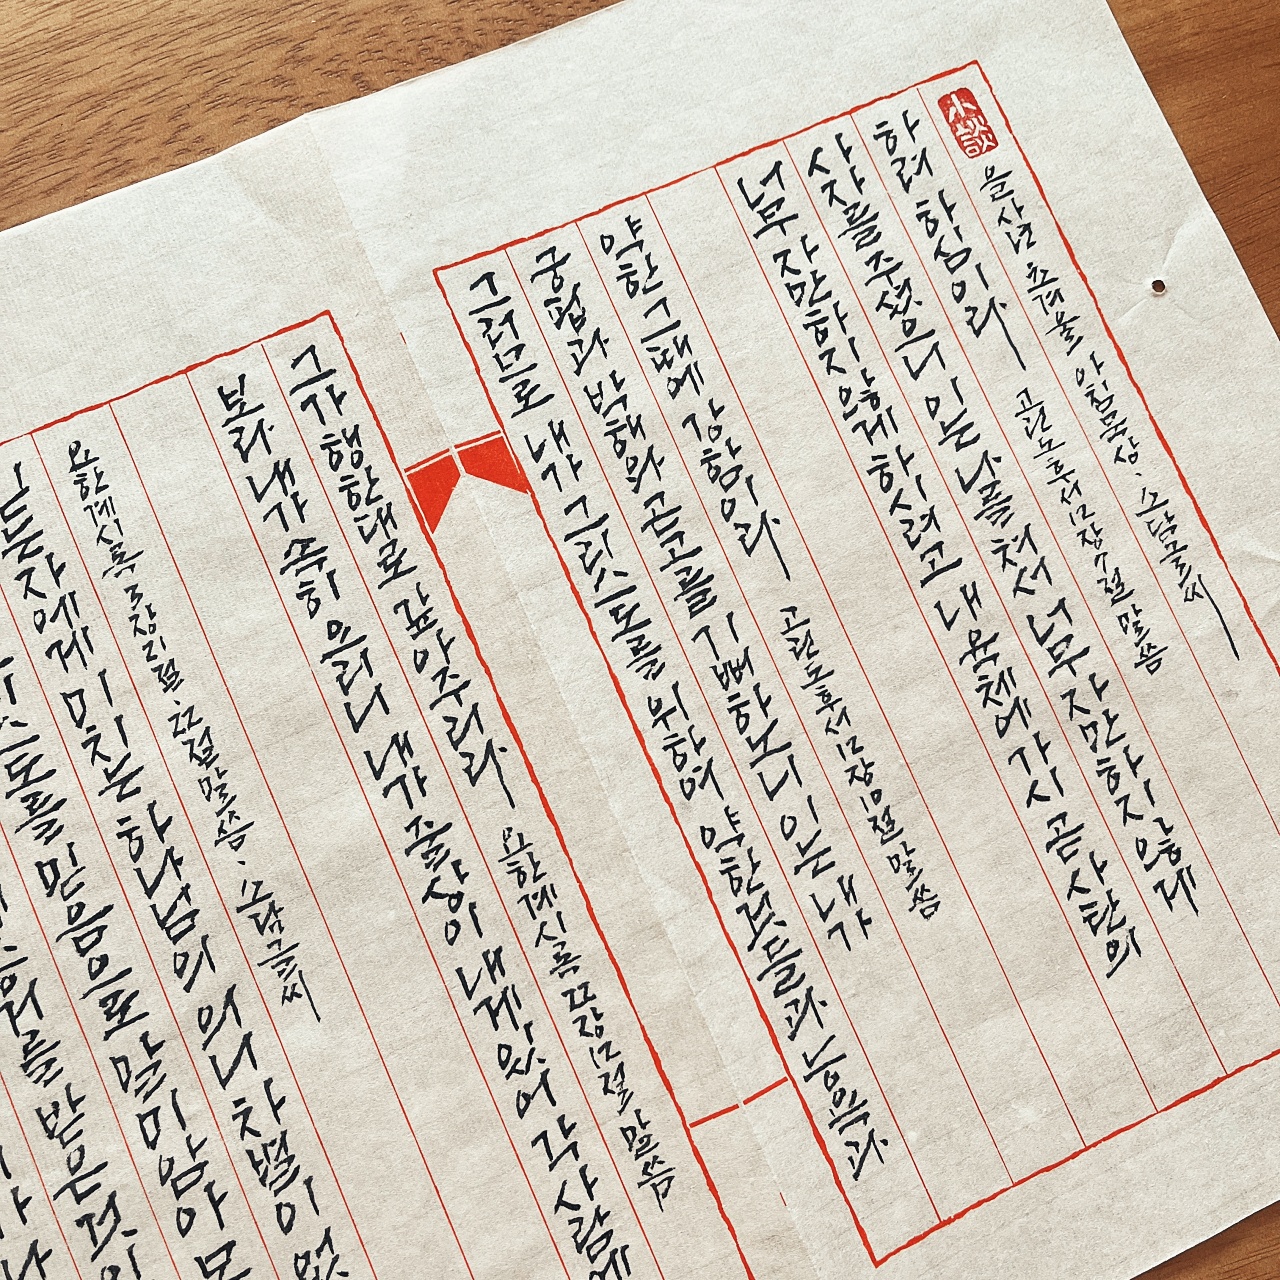 를 받은 것이
스도를 믿음으로 말미암아 모
는자에게 미치는 하나님의 의니 차별이 없
요한계시록 3장21절.22절말씀. 소담글씨
보라 내가 속히 오리니 내가 줄상이 내게 있어 각 사람에
그가 행한대로 갚아주리라 요한계시록 22장12절 말씀
그러므로 내가 그리스도를 위하여 약한것들과 능욕과
궁핍과 박해와 곤고를 기뻐하노니 이는 내가
약한 그때에 강함이라 고린도후서12장10절 말씀
너무 자만하지 않게 하시려고 내 육체에 가시 곧 사탄의
사자를 주셨으니 이는 나를 쳐서 너무 자만하지 않게
하려 하심이라 고린도후서12장7절 말씀
小談 을사년 초겨울 아침묵상. 소담글씨